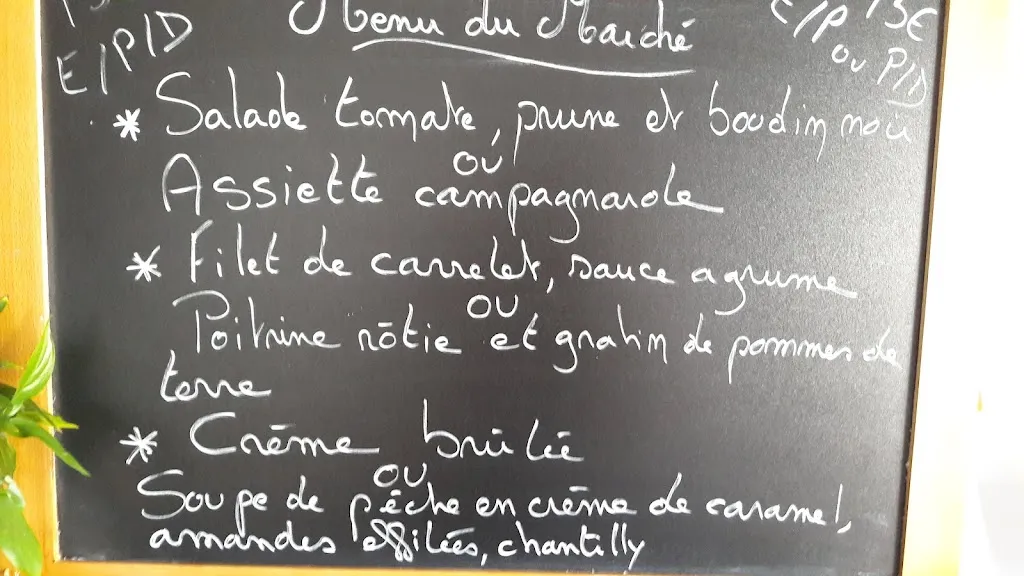 Menu du Marché
E/P/D
E/P
ou P/D
* Salade tomate, prune et boudin noir
ou
Assiette campagnarde
* Filet de carrelet, sauce agrume
ou
Poitrine rôtie et gratin de pommes de
terre
* Crème brûlée
ou
Soupe de pêche en crème de caramel,
amandes effilées, chantilly